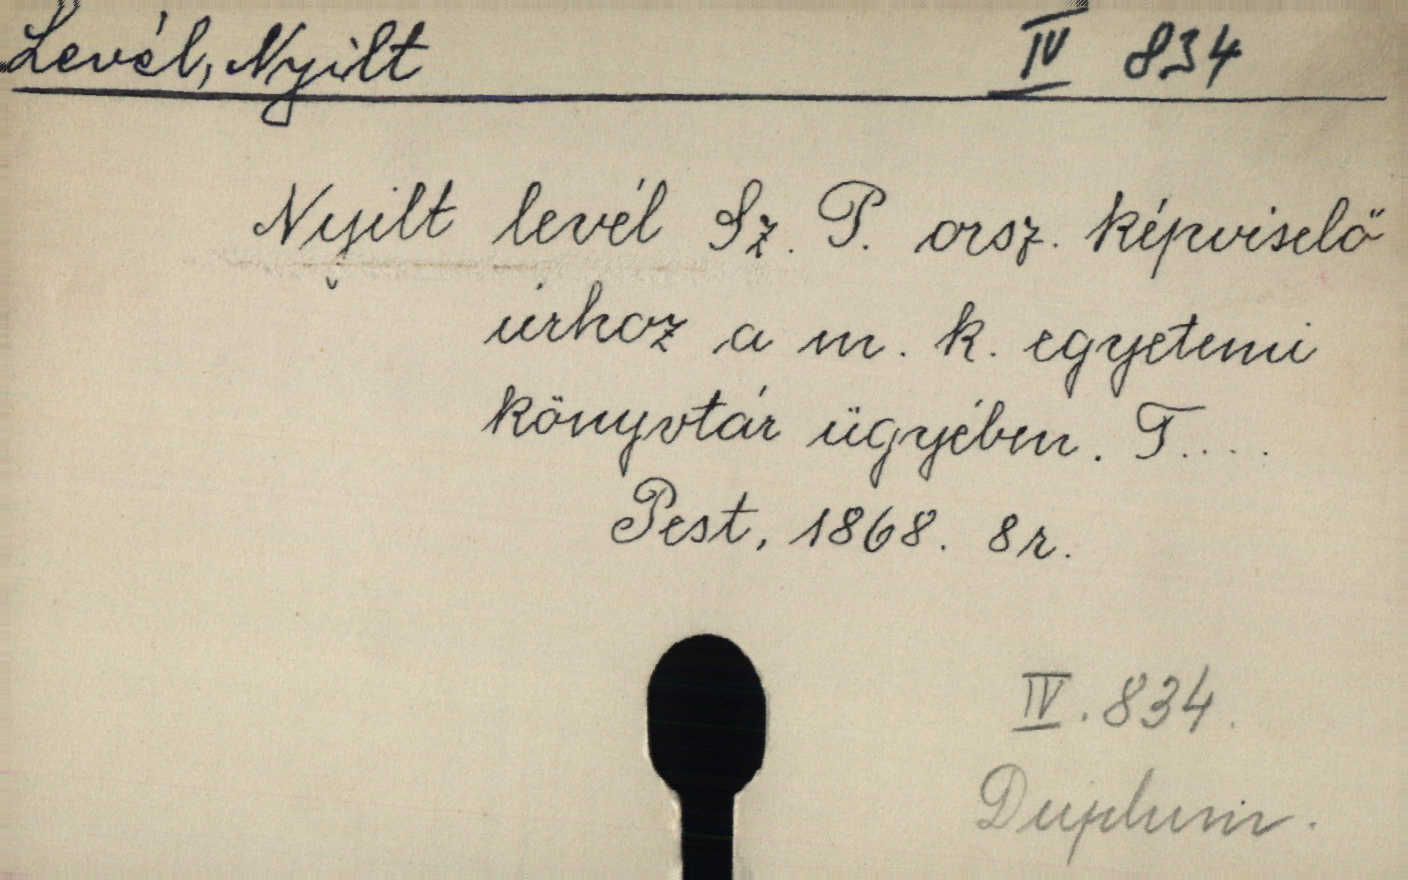 Levél, Nyilt IV 834
Nyilt levél Sz. P. orsz. képviselő
úrhoz a m. k. egyetemi
könyvtár ügyében. T....
Pest, 1868. 8r.
IV. 834.
Duplum.